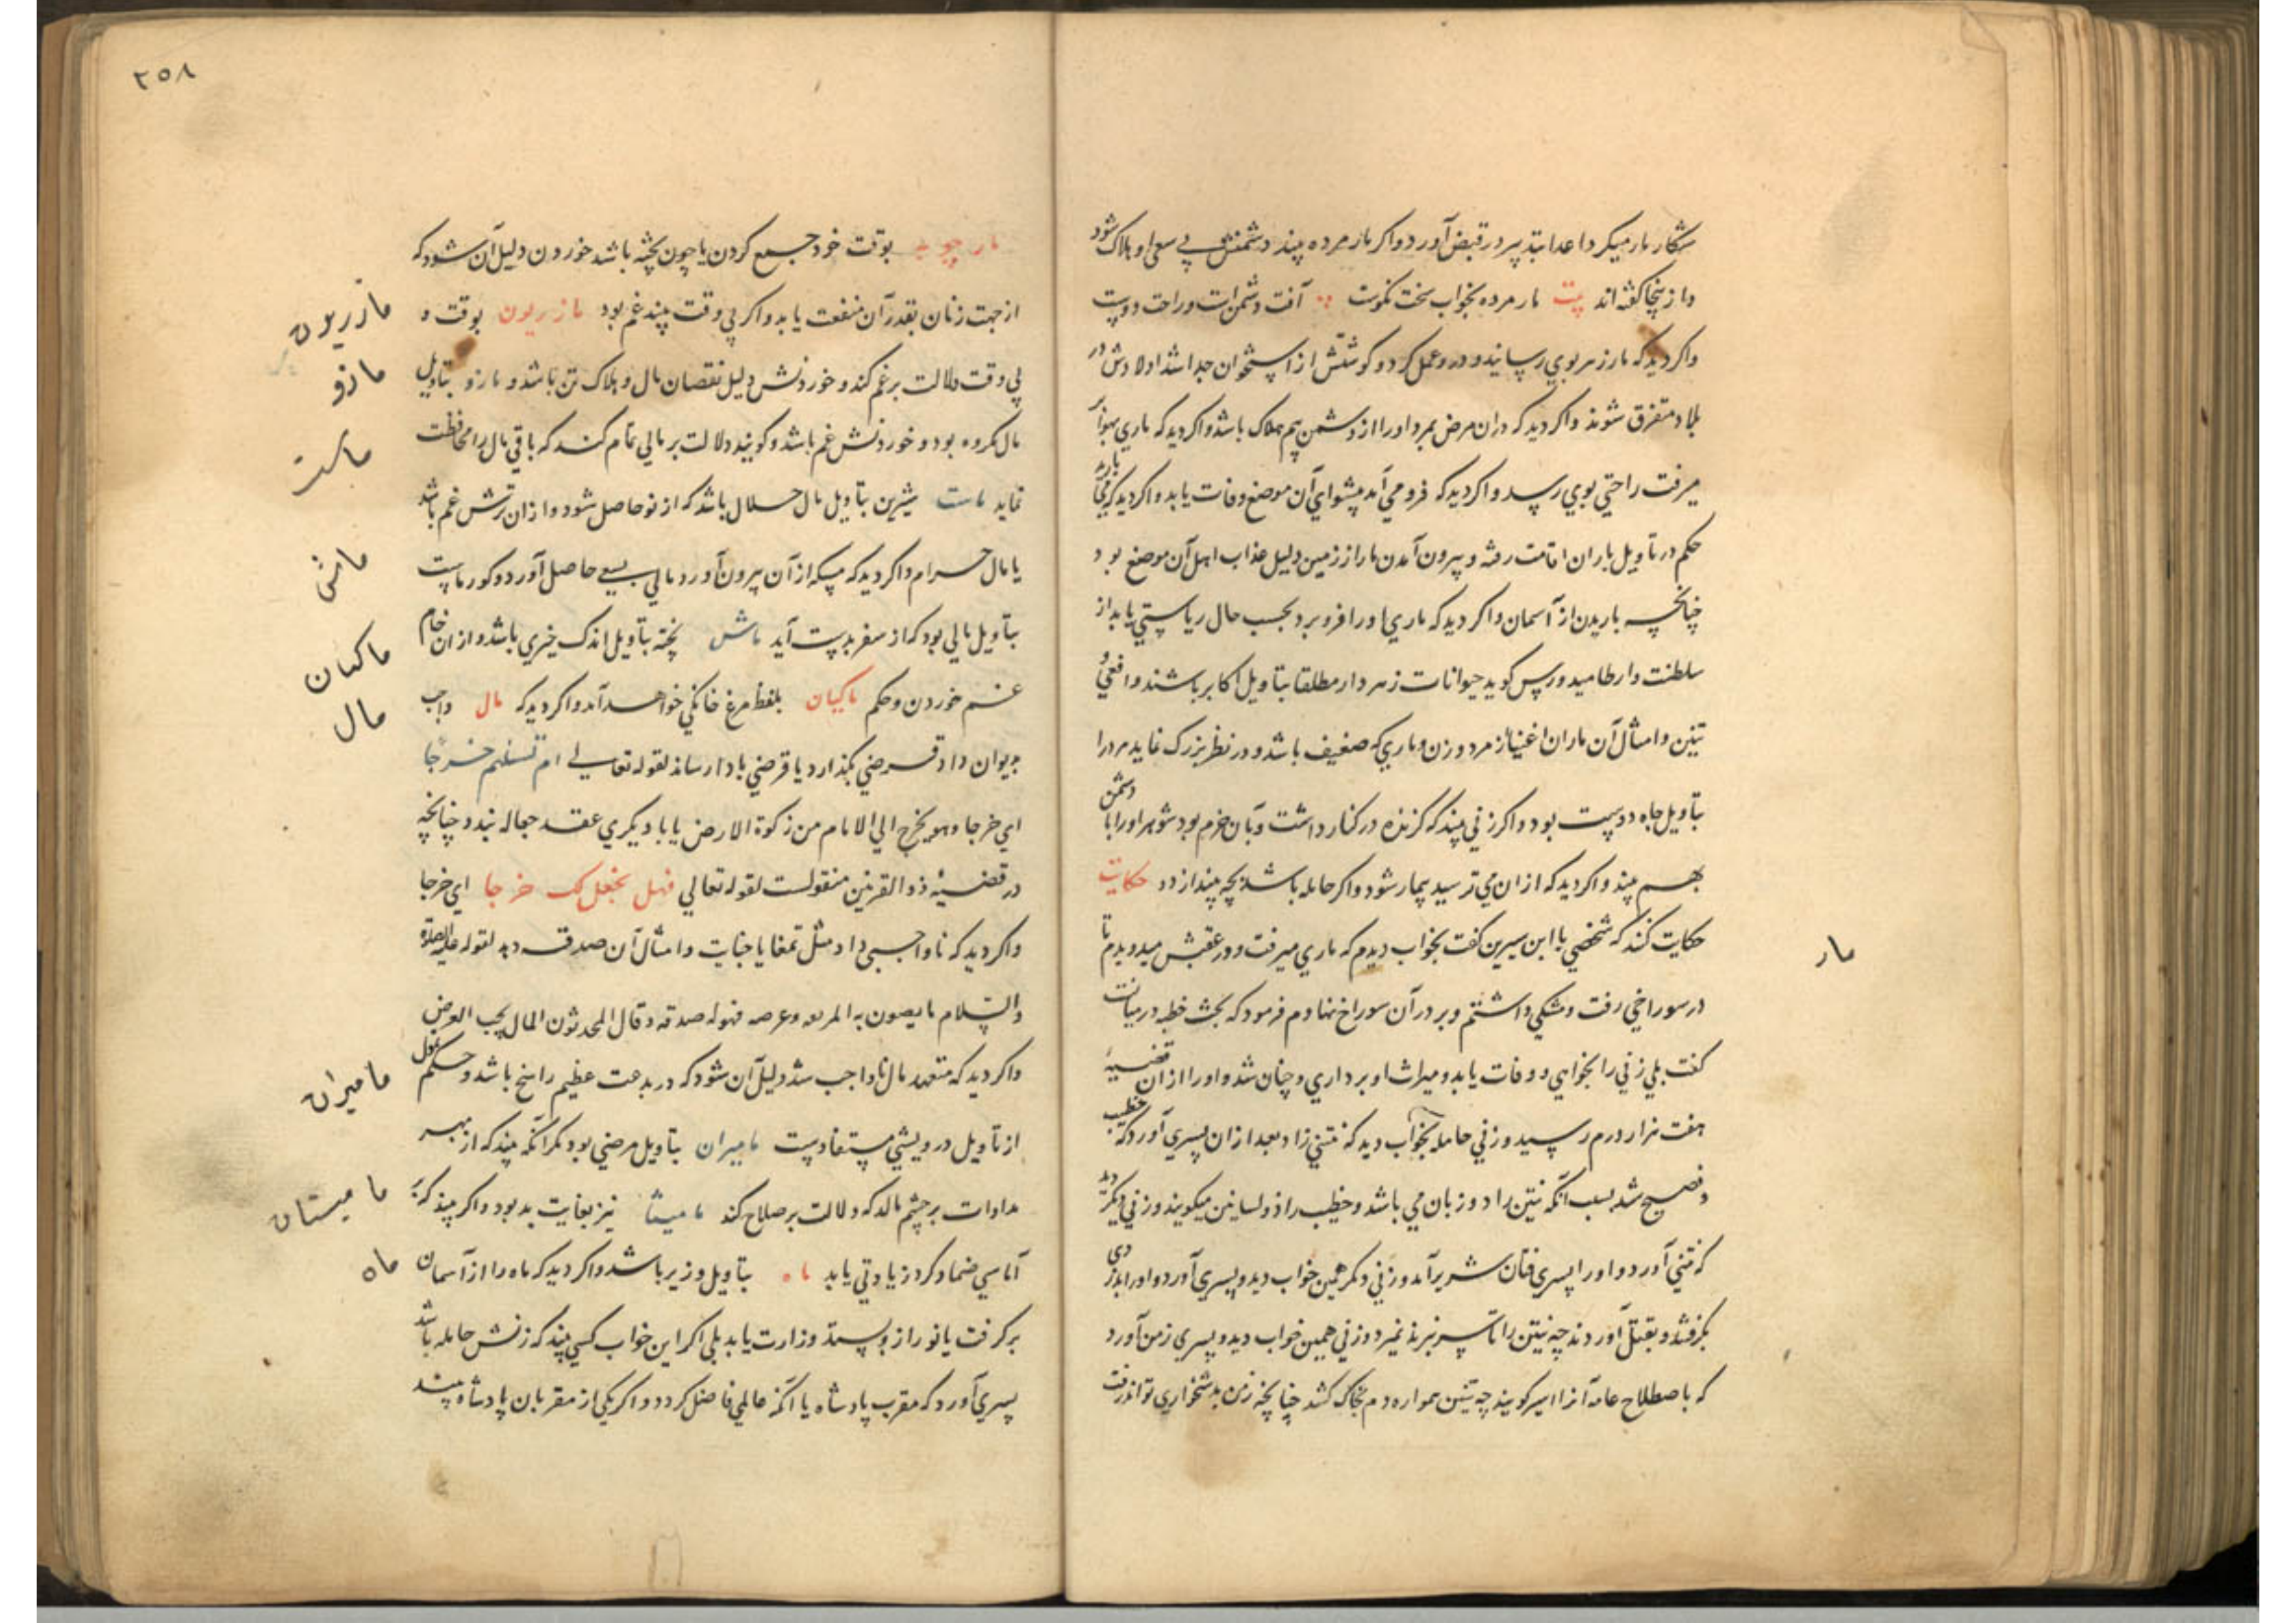 شکار مار میکرد اعدا بتدبیر در قبض آورد و اکر مار مرده بیند دشمنش بی سعی او هلاک شود
و از ینجا کفته اند بیت مار مرده بخواب سخت نکوست آفت دشمن است و راحت دوست
واکر دید که مار زهر بوی رسانید و در و عمل کرد و کوشتش از استخوان جدا شد اولادش در
بلاد متفرق شوند واکر دید که دران مرض بمرد اورا از دشمن بیم هلاک باشد واکر دید که ماری بهوا بر
میرفت راحتی بوی رسد واکر دید که فرو می آمد پیشوای آن موضع وفات یابد واکر دید که
حکم در تاویل باران اقامت رفته و بیرون آمدن مار از زمین دلیل عذاب اهل آن موضع بود
چنانچه باریدن از آسمان واکر دید که ماری اورا فرو برد بحسب حال ریاستی یابد از
سلطنت وارطامیدورس کوید حیوانات زهردار مطلقا بتاویل اکابر باشند وافعی و
تنین وامثال آن ماران اغنیا از مرد وزن وماری که ضعیف باشد و در نظر بزرک نماید مر درا
بتاویل جاه دوست بود واکر زنی بیند که کزنده در کنار داشت و بآن خرم بود شوهر اورا با دشمن
بهم بیند واکر دید که ازان می ترسید بیمار شود واکر حامله باشد بچه بیندازد حکایت
حکایت کنند که شخصی با ابن سیرین کفت بخواب دیدم که ماری میرفت و در عقبش میدویدم تا
در سوراخی رفت و مشکی داشتم و بر در آن سوراخ نهادم فرمود که بحث خطبه در میانست
کفت بلی زنی را بخواهی و وفات یابد و میراث او برداری و چنان شد و اورا ازان قضیه
هفت هزار درم رسید و زنی حامله بخواب دید که تنینی زاد بعد ازان پسری آورد که خطیب
و فصیح شد بسبب آنکه تنین را دو زبان می باشد و خطیب را ذولسانین میکویند و زنی دیکر دید
که تنینی آورد و اورا پسری فتان شریر آمد و زنی دیکر همین خواب دید و پسری آورد و اورا بدزدی
بکرفتند و بقتل آوردند چه تنین را تا سر نبرند نمیرد و زنی همین خواب دید و پسری زمن آورد
که باصطلاح عامه آنرا اسیر کویند چه تنین همواره دم بخاک کشد چنانچه زمن بدشخواری تواند رفت
مار
۲۵۸
مارچوبه بوقت خود جمع کردن یا چون پخته باشد خوردن دلیل آن شود که
از جهت زنان بقدر آن منفعت یابد واکر بی وقت بیند غم بود مازریون بوقت و
بی وقت دلالت بر غم کند و خوردنش دلیل نقصان مال و هلاک تن باشد و مازو بتاویل
مال مکروه بود و خوردنش غم باشد و کویند دلالت بر مالی تمام کند که باقی مال را محافظت
نماید ماست شیرین بتاویل مال حلال باشد که از نو حاصل شود و ازان ترش غم باشد
یا مال حرام واکر دید که مسکه از آن بیرون آورد مالی بسعی حاصل آورد و کور ماست
بتاویل مالی بود که از سفر بدست آید ماش پخته بتاویل اندک خیری باشد و ازان خام
غم خوردن و حکم ماکیان بلفظ مرغ خانکی خواهد آمد واکر دید که مال واجب
بدیوان داد قرضی بکذارد یا قرضی بادا رساند لقوله تعالی ام تسئلهم خرجا
ای خرجا وهو یخرج الی الامام من زکوة الارض یا با دیکری عقد جعاله بندد چنانچه
در قضیه ذو القرنین منقولست لقوله تعالی فهل نجعل لک خرجا ای خرجا
واکر دید که ناواجبی داد مثل تمغا یا جنایت وامثال آن صدقه دهد لقوله علیه الصلوة
والسلام ما یصون به المرء وعرضه فهو له صدقه وقال المحدثون المال یحب العرض
واکر دید که متعهد مال ناواجب شد دلیل آن شود که در بدعت عظیم راسخ باشد و حکم تمول
از تاویل درویشی مستفادست مامیران بتاویل مرضی بود مکر آنکه بیند که از بهر
مداوات بر چشم مالد که دلالت بر صلاح کند مامیثا نیز بغایت بد بود واکر بیند که بر
آماسی ضماد کرد زیادتی یابد ماه بتاویل وزیر باشد واکر دید که ماه را از آسمان
بر کرفت یا نور ازو بستد وزارت یابد بلی اکر این خواب کسی بیند که زنش حامله باشد
پسری آورد که مقرب پادشاه یا آنکه عالمی فاضل کردد واکر یکی از مقربان پادشاه بیند
مازریون
مازو
ماست
ماش
ماکیان
مال
مامیران
مامیستان
ماه